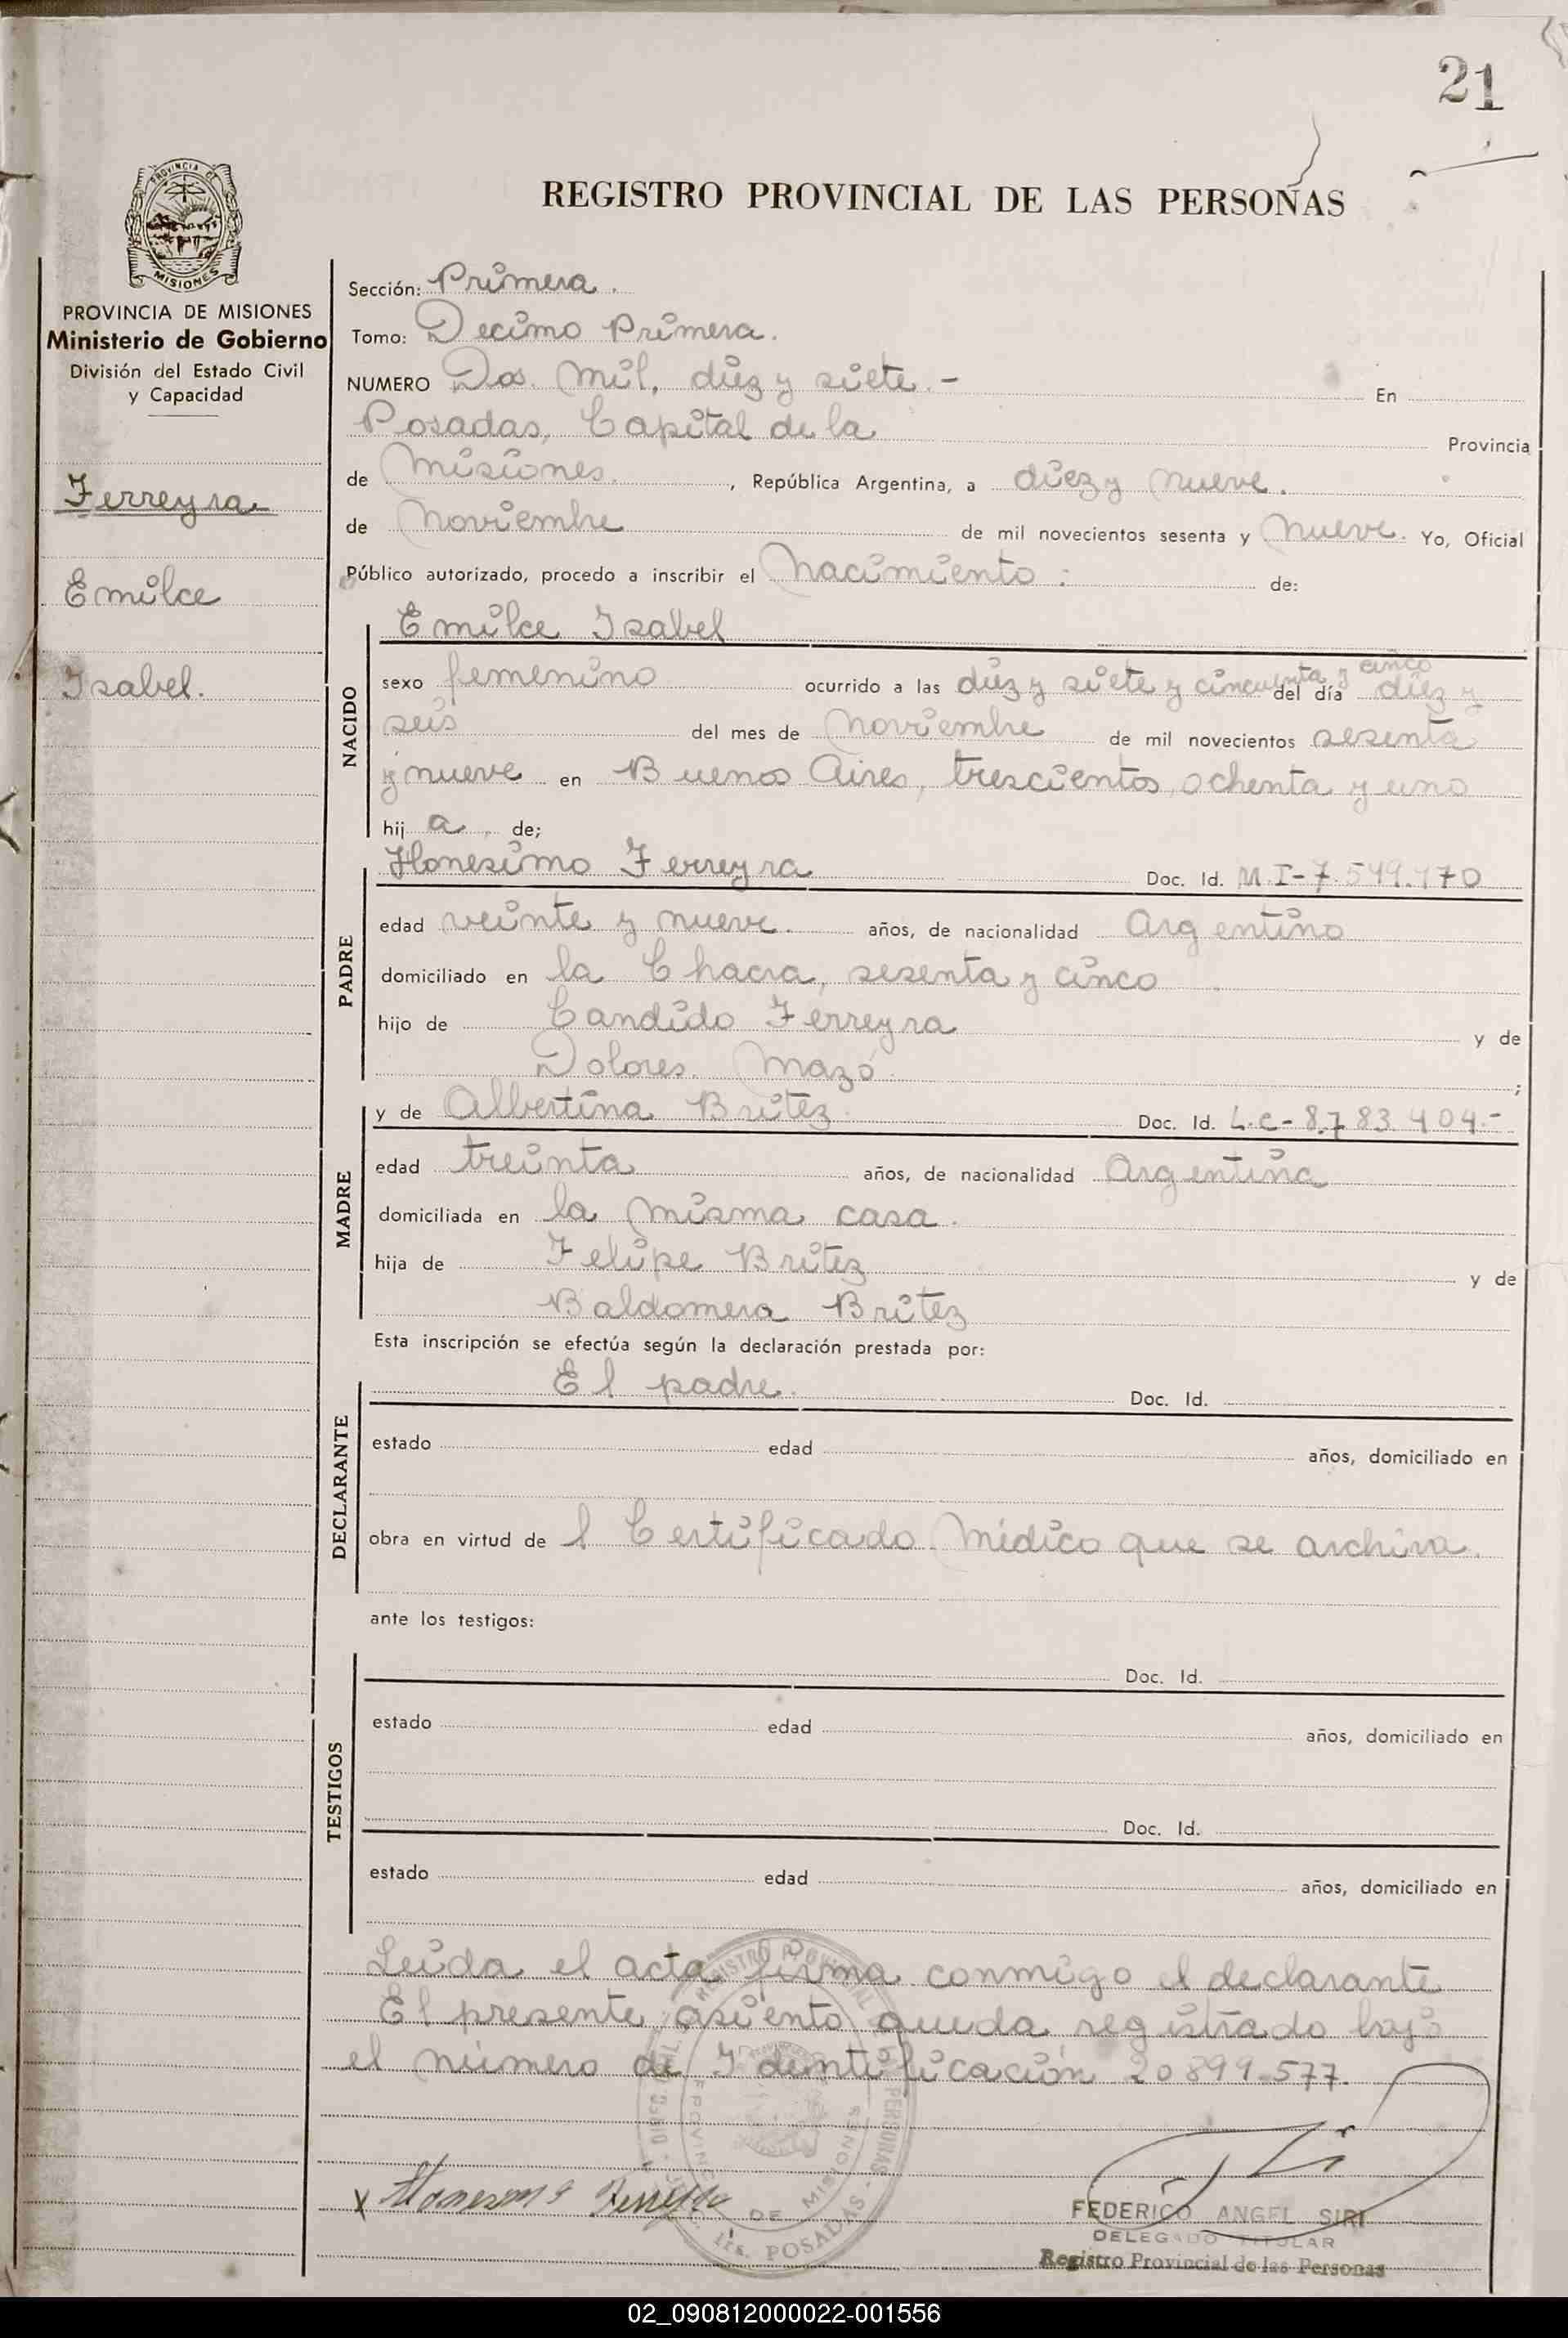 21
REGISTRO PROVINCIAL DE LAS PERSONAS
PROVINCIA DE
MISIONES
PROVINCIA DE MISIONES
Ministerio de Gobierno
División del Estado Civil
y Capacidad
Ferreyra
Emilce
Isabel.
Sección: Primera.
Tomo: Decimo Primera.
NUMERO Dos. Mil, diez y siete.- En
Posadas, Capital de la Provincia
de Misiones. , República Argentina, a diez y nueve.
de Noviembre de mil novecientos sesenta y Nueve. Yo, Oficial
Público autorizado, procedo a inscribir el Nacimiento: de:
NACIDO
Emilce Isabel
sexo femenino ocurrido a las diez y siete y cincuenta y cinco del día diez y
seis del mes de Noviembre de mil novecientos sesenta
y nueve en Buenos Aires, trescientos ochenta y uno
hij a de;
PADRE
Honesimo Ferreyra Doc. Id. M.I-7.549.170
edad veinte y nueve. años, de nacionalidad Argentino
domiciliado en la Chacra, sesenta y cinco
hijo de Candido Ferreyra y de
Dolores Mazó ;
MADRE
y de Albertina Britez Doc. Id. L.C-8.783.404.-
edad treinta años, de nacionalidad Argentina
domiciliada en la misma casa.
hija de Felipe Britez y de
Baldomera Britez
Esta inscripción se efectúa según la declaración prestada por:
DECLARANTE
El padre. Doc. Id.
estado edad años, domiciliado en
obra en virtud de l Certificado Médico que se archiva.
ante los testigos:
TESTIGOS
Doc. Id.
estado edad años, domiciliado en
Doc. Id.
estado edad años, domiciliado en
Leida el acta firma conmigo el declarante
El presente asiento queda registrado bajo
el número de Identificación 20899.577.
x Honesimo Ferreyra
REGISTRO PROVINCIAL DE LAS PERSONAS
PROVINCIA DE MISIONES
POSADAS
FEDERICO ANGEL SIRI
DELEGADO TITULAR
Registro Provincial de las Personas
02_090812000022-001556